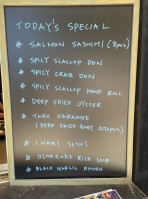 TODAY'S SPECIAL
* SALMON SASHIMI (8pcs)
* SPICY SCALLOP DON
* SPICY CRAB DON
* SPICY SCALLOP HAND ROLL
* DEEP FRIED OYSTER
* TAKO KARAAGE
(DEEP FRIED BABY OCTOPUS)
* INARI SUSHI
* RICE SOUP
* BLACK GARLIC RAMEN